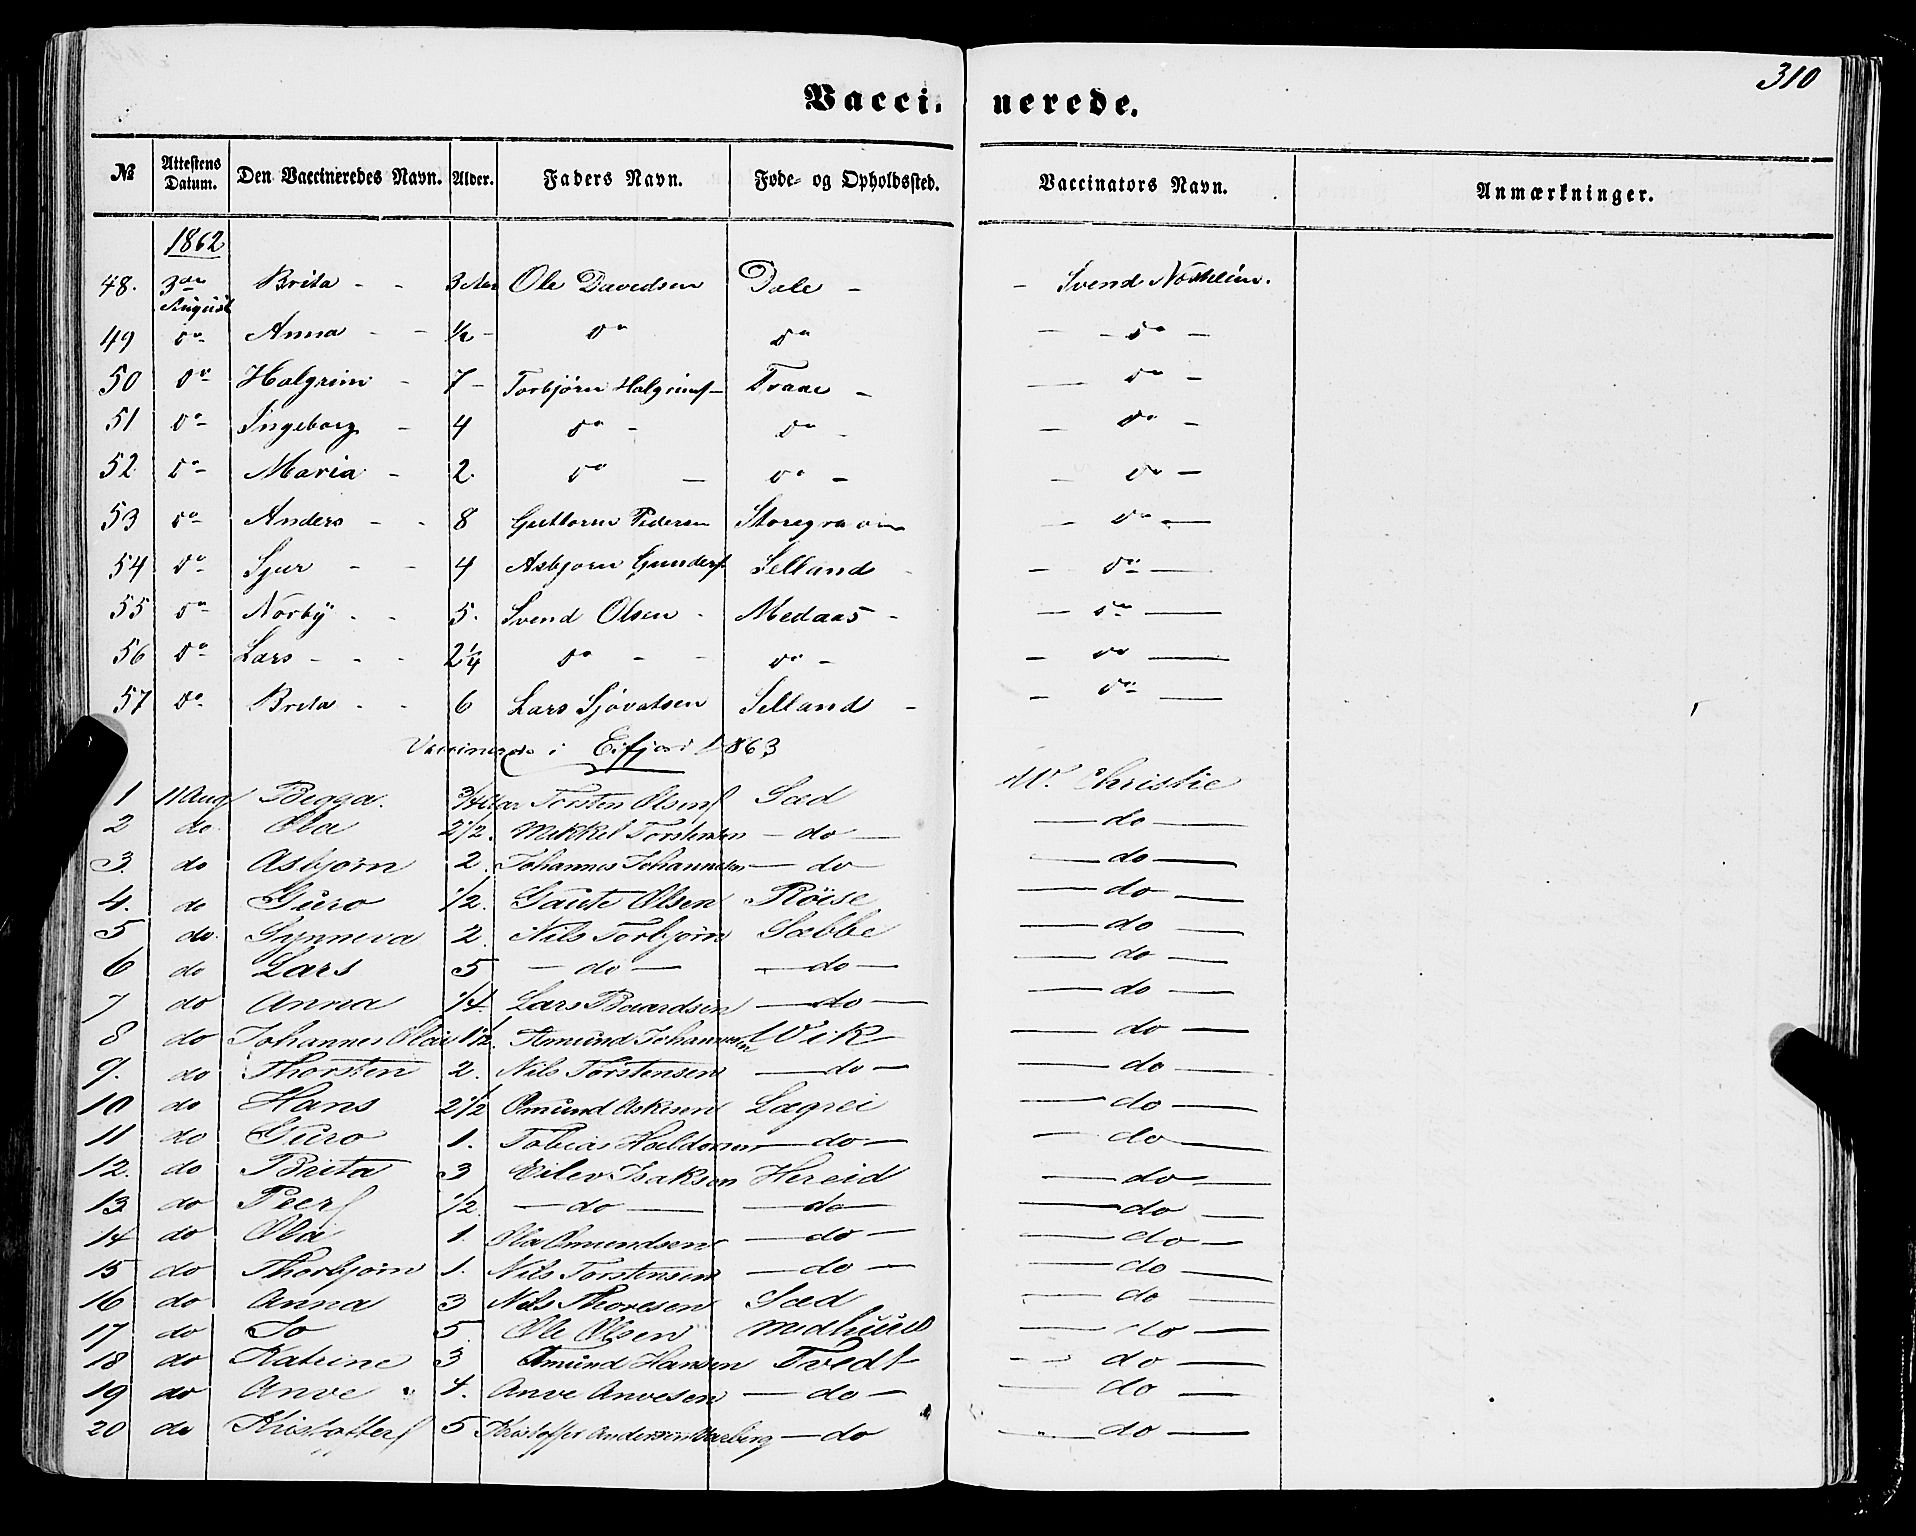 310
Vaccinerede.
№ Attestens Datum. Den Vaccineredes Navn. Alder. Faders Navn. Føde- og Opholdssted. Vaccinators Navn. Anmærkninger.
1862
48. 3die August Brita - - 3 Aar Ole Davedsen Dale - - Svend
49 do Anna - - ½ - do do - - do -
50 do Halgrim - 7 - Torbjörn Halgrims - Traae - - do -
51 do Ingeborg - 4 do - do - - do -
52. do Maria - 2. do - do - - do -
53 do Anders - - 8 Guttorm Pedersen - do -
54 do Sjur - - 4 Asbjorn Gunders. Selland - - do -
55 do Norby - - 5. Svend Olsen - Medaas - - do -
56 do Lars - - - 2¼ do - - do - - do -
57 do Brita - - 6 Lars Sjovatsen Selland - - do -
Vaccinerede i Eifjord 1863
1 11 Aug Begga. ¾ Aar Torsten Olsen Sæd W. Christie
2 do Ola 2½. Mikkel Torstensen - do - - do -
3. do Asbjorn 2. Johannes Johannesen - do - do -
4. do Guro ½. Gaute Olsen Röise - do -
5 do. Synneva 2. Nils Torbjorn Sæbbe - do -
6 do Lars 5 - do - - do - - do -
7 do Anna ¼. Lars Baardsen - do - - do -
8 do Johannes Olai 1½. Amund Johannesen Wik - do -
9. do Thorsten 2. Nils Torstensen - do - - do -
10 do Hans 2½ Omund Askesen Lægrei - do -
11 do Guro 1. Tobias Haldorsen - do - - do -
12. do Brita 3 Eilev Isaksen Hereid - do -
13. do Peer ½. - do - - do - - do -
14 do Ola 1. Ola Omundsen - do - - do -
15 do Thorbjorn 1. Nils Torstensen - do - - do -
16 do Anna 3 Nils Thoresen Sæd - do -
17 do Jo 5. Ole Olsen Medhuus - do -
18 do Katrine 3 Amund Hansen Tvedt - do -
19 do Anve 4. Anve Anvesen - do - - do -
20 do Kristoffer 5 Kristoffer Andersen - do - do -